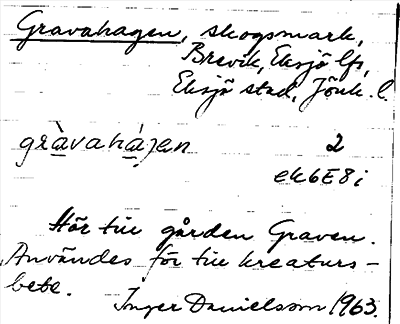 Gravahagen, skogsmark,
Brevik, Eksjö lfs,
Eksjö stad, Jönk. l.
gràvahá̱gen 2
ek6E8i
Hör till gården Graven.
Användes för till kreaturs-
bete.
Inger Danielsson 1963.